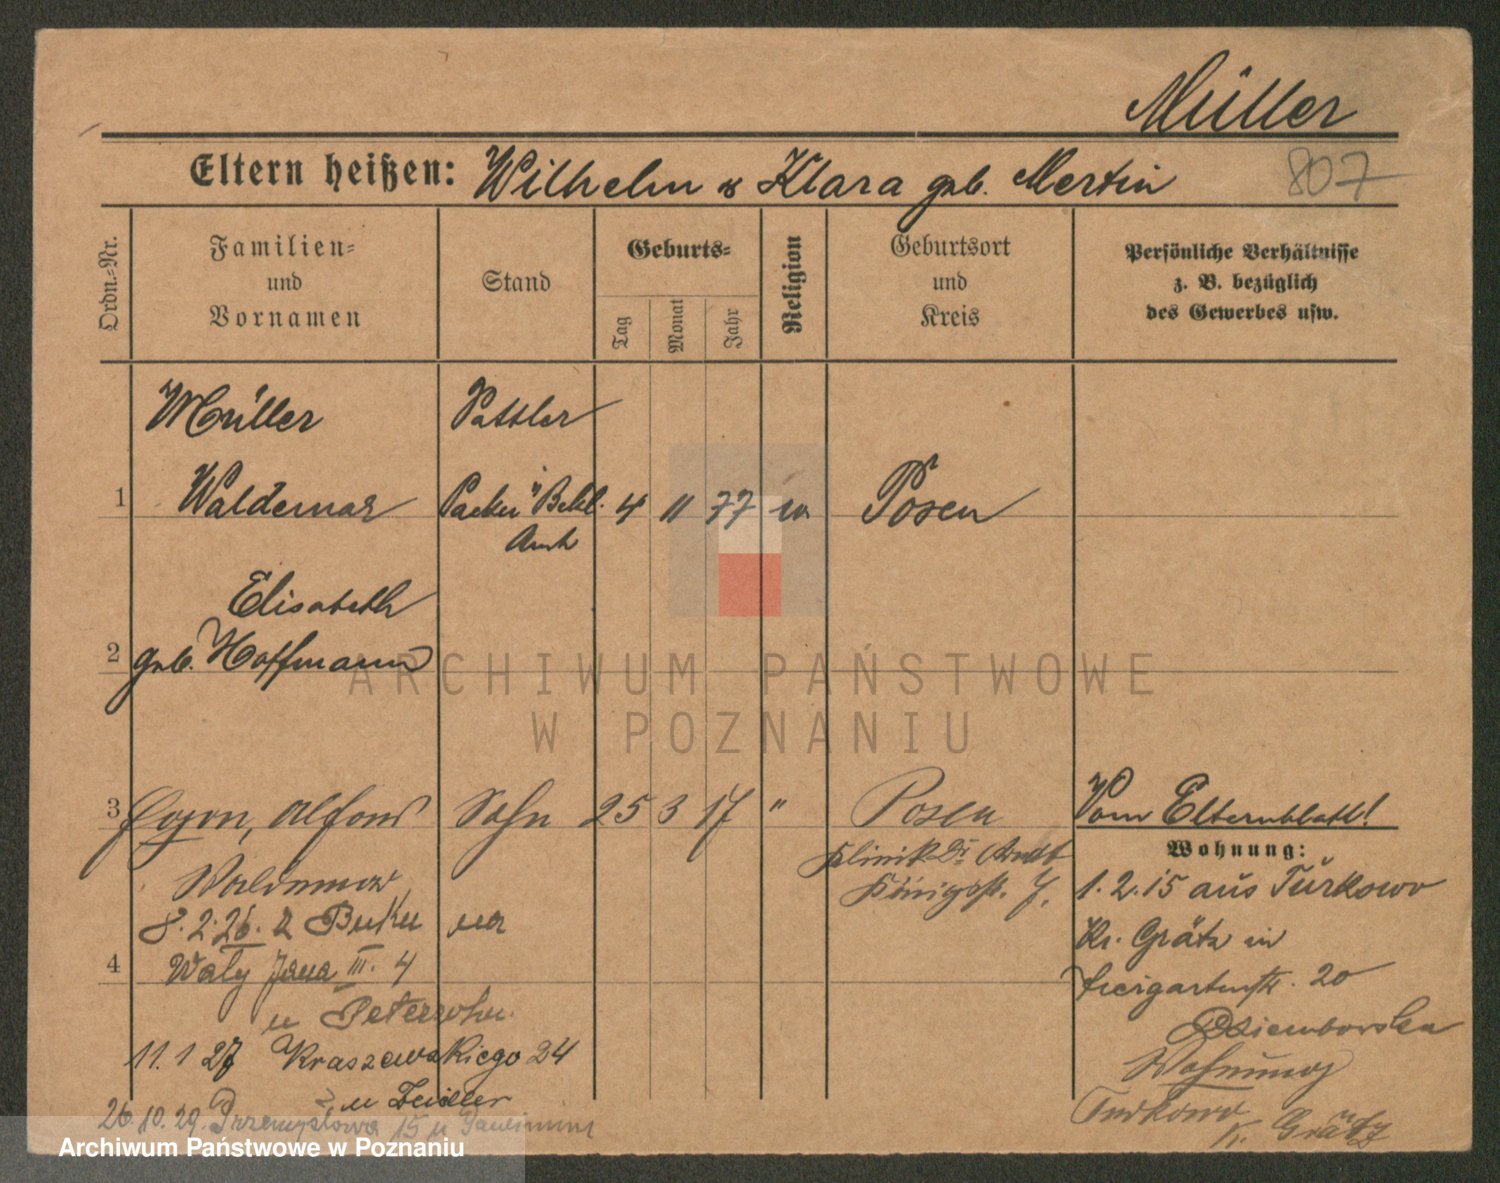 Müller
Eltern heißen: Wilhelm & Klara geb. Mertin
807
Ordn.-Nr.
Familien-
und
Vornamen
Stand
Geburts-
Tag
Monat
Jahr
Religion
Geburtsort
und
Kreis
Persönliche Verhältnisse
z. B. bezüglich
des Gewerbes usw.
Müller Sattler
1 Waldemar 4 11 77 Posen
Elisabeth
2 geb. Hoffmann
ARCHIWUM PAŃSTWOWE
W POZNANIU
3 Egon, Alfons Sohn 25 3 17 " Posen
Waldemar
Klinik Dr.
Königstr. 7.
8.2.26.
4 Waly Jana III. 4
11.1 27 Kraszewskiego 24
u Zeidler
26.10.29. Przemysłowa 15 u
Vom Elternblatt!
Wohnung:
1.2.15 aus Turkowo
Kr. Grätz in
Tiergartenstr. 20
Wohnung
Turkowo
K. Grätz
Archiwum Państwowe w Poznaniu